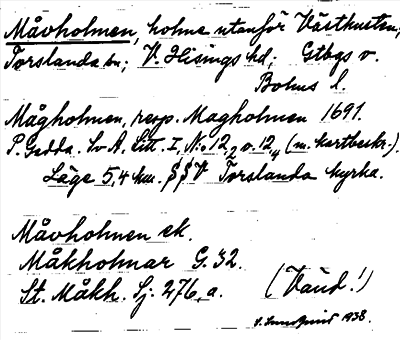 Måvholmen, holme utanför Västkusten,
Torslanda sn; V. Hisings hd; Gtbgs o.
Bohus l.
Mågholmen, resp. Magholmen 1691.
P. Gedda. Sv A. Litt. I, N:o 12 o. 12 (m. kartbeskr.).
Läge 5,4 km. SSV Torslanda kyrka.
Måvholmen ek.
Måkholmar G. 32.
St. Måkh. Sj: 276, a. (Vaud!)
1938.